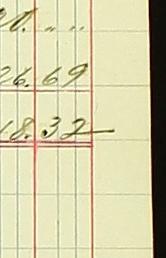 20. " "
26.69
18.32